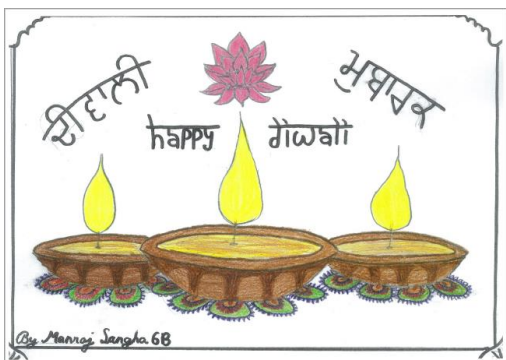 ਦੀਵਾਲੀ ਮੁਬਾਰਕ
happy diwali
By Manraj Sangha 6B